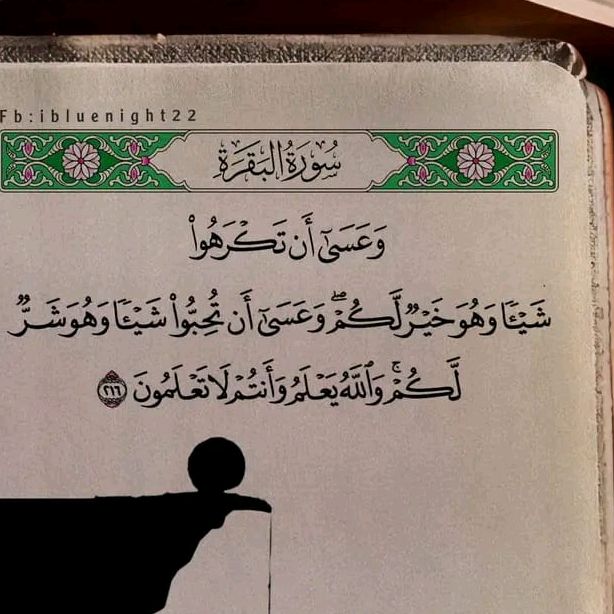 Fb:ibluenight22
سُورَةُ البَقَرَةِ
وَعَسَىٰٓ أَن تَكۡرَهُواْ
شَيۡـٔٗا وَهُوَ خَيۡرٞ لَّكُمۡۖ وَعَسَىٰٓ أَن تُحِبُّواْ شَيۡـٔٗا وَهُوَ شَرّٞ
لَّكُمۡۚ وَٱللَّهُ يَعۡلَمُ وَأَنتُمۡ لَا تَعۡلَمُونَ ٢١٦